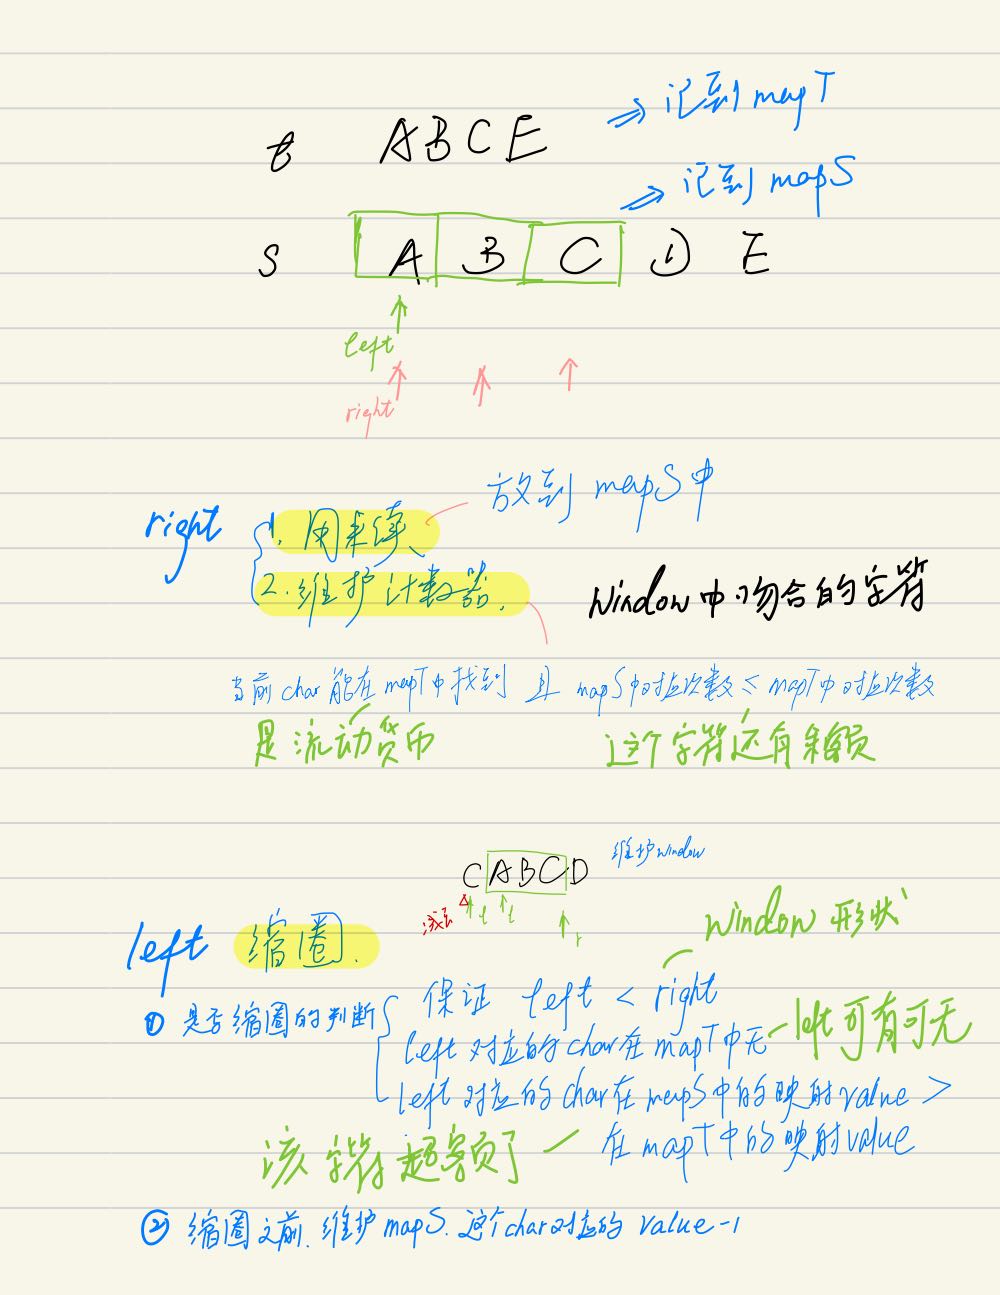 t ABCE ⇒ 记到 mapT
⇒ 记到 mapS
S A B C D E
left
right
放到 mapS中
right 1. 用来读、
2. 维护计数器.
Window中吻合的字符
当前 char 能在 mapT中找到 且 mapS中对应次数 ≤ mapT中对应次数
是流动货币 这个字符还有余额
维护window
C A B C D
减去 l l r
Window 形状
left 缩圈.
① 是否缩圈的判断 保证 left < right
left 对应的char在 mapT中无 - left 可有可无
left 对应的char在 mapS中的映射value >
在 mapT中的映射value
该字符超额了
② 缩圈之前. 维护 mapS. 这个char对应的 value -1